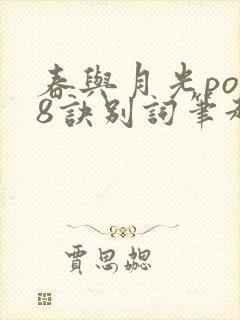 春與月光po
8訣別詞筆
賈思勰